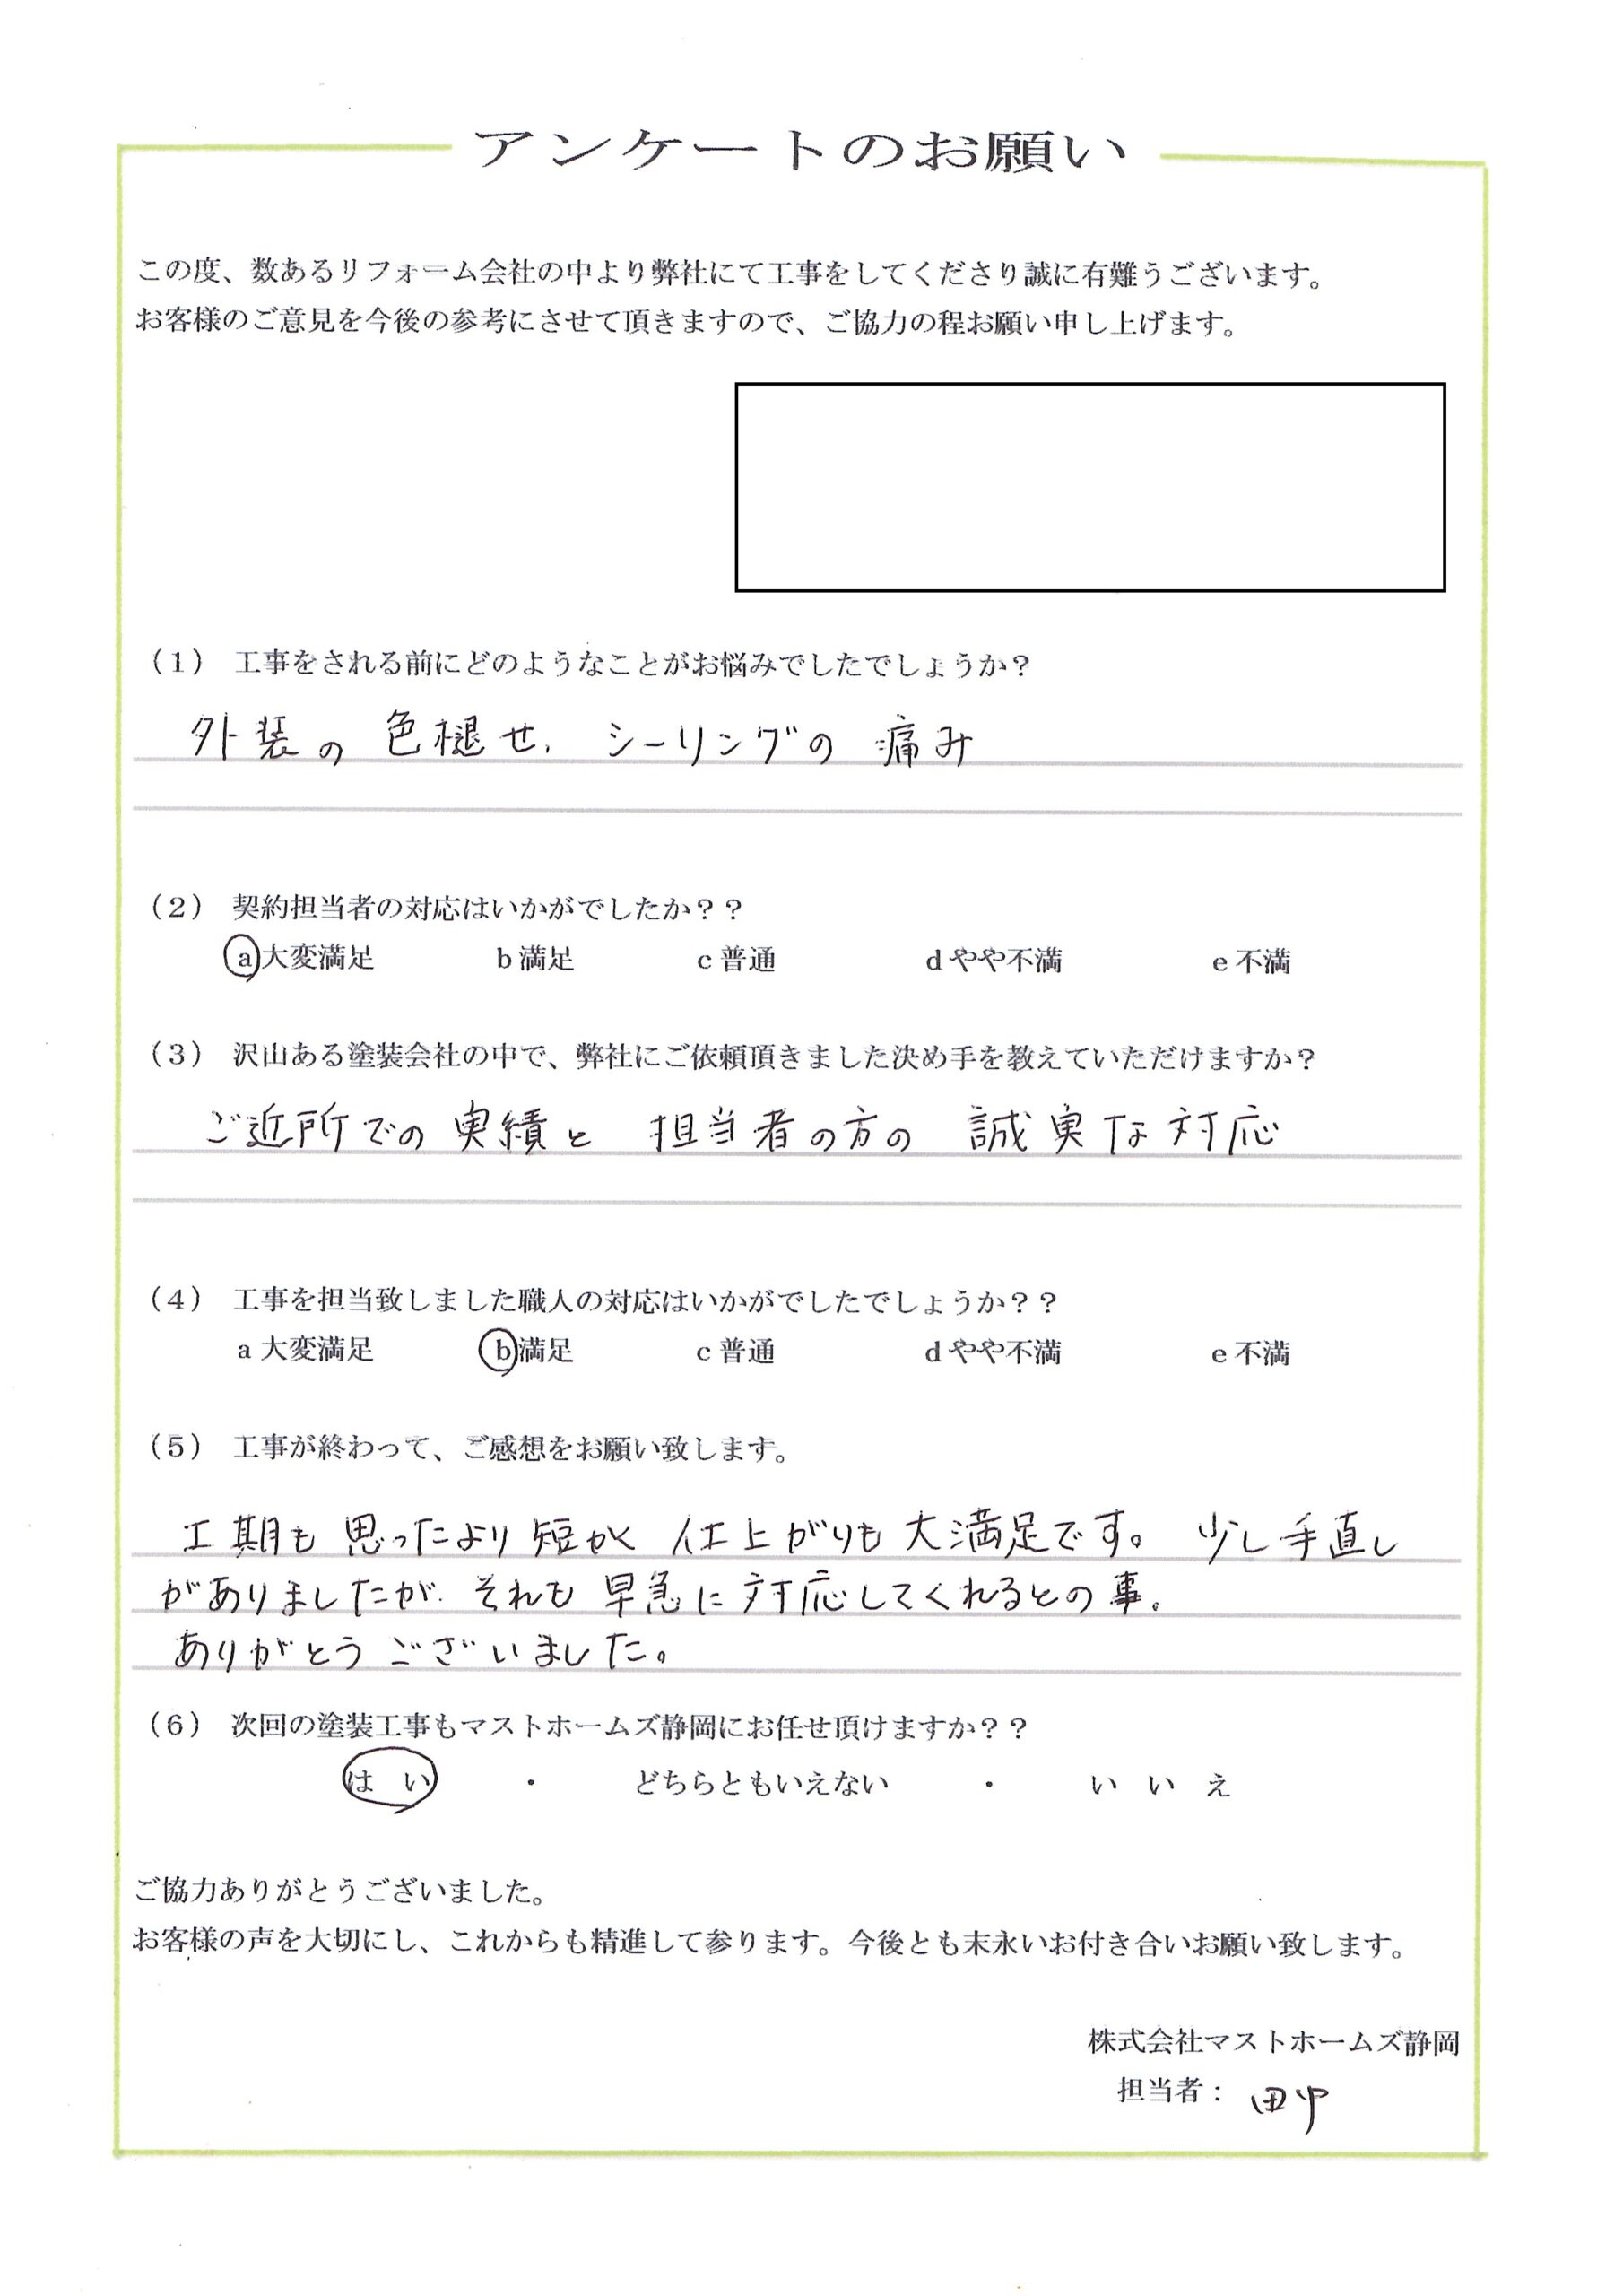 アンケートのお願い
この度、数あるリフォーム会社の中より弊社にて工事をしてくださり誠に有難うございます。
お客様のご意見を今後の参考にさせて頂きますので、ご協力の程お願い申し上げます。
（1） 工事をされる前にどのようなことがお悩みでしたでしょうか？
外装の 色褪せ、シーリングの 痛み
（2） 契約担当者の対応はいかがでしたか？？
a 大変満足 b 満足 c 普通 d やや不満 e 不満
（3） 沢山ある塗装会社の中で、弊社にご依頼頂きました決め手を教えていただけますか？
ご近所での 実績と 担当者の方の 誠実な対応
（4） 工事を担当致しました職人の対応はいかがでしたでしょうか？？
a 大変満足 b 満足 c 普通 d やや不満 e 不満
（5） 工事が終わって、ご感想をお願い致します。
工期も 思ったより 短かく 仕上がりも 大満足です。 少し手直し
がありましたが、それも 早急に 対応してくれるとの事。
ありがとう ございました。
（6） 次回の塗装工事もマストホームズ静岡にお任せ頂けますか？？
は い ・ どちらともいえない ・ い い え
ご協力ありがとうございました。
お客様の声を大切にし、これからも精進して参ります。今後とも末永いお付き合いお願い致します。
株式会社マストホームズ静岡
担当者： 田中